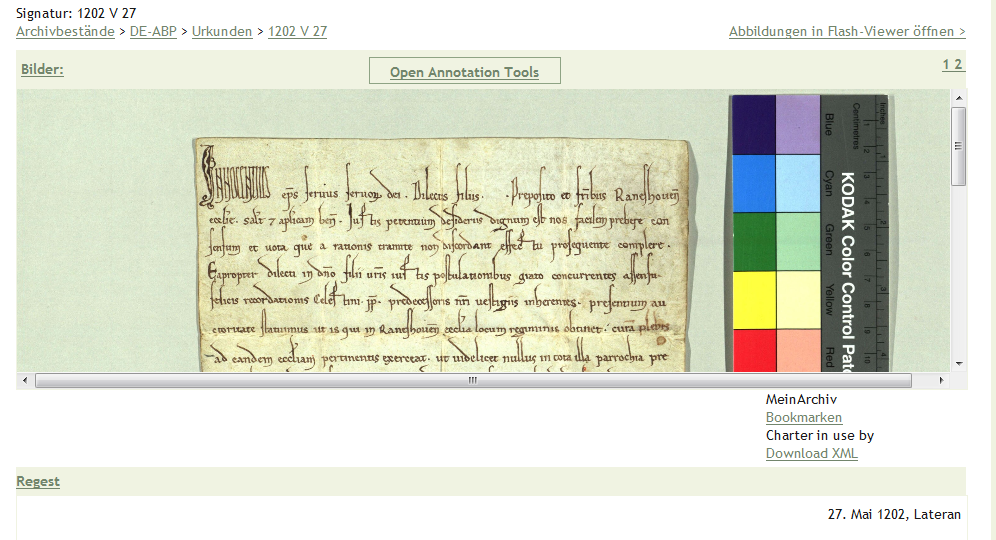 Signatur: 1202 V 27
Archivbestände > DE-ABP > Urkunden > 1202 V 27
Abbildungen in Flash-Viewer öffnen >
Bilder:
Open Annotation Tools
1 2
Innocentius eps seruus seruoꝝ dei. Dilectis filiis. Preposito et fribus Raneshouen
ecclie. salt ⁊ aplicam ben. Iustis petentium desideriis dignum est nos facilem prebere con
sensum et uota que a rationis tramite non discordant effectu prosequente complere.
Eapropter dilecti in dno filii uris iustis postulationibus grato concurrentes assensu.
felicis recordationis Celestini. pp. predecessoris nri uestigiis inherentes. presentium au
ctoritate statuimus ut is qui in Raneshouen ecclia locum regiminis obtinet. curā plebis
ad eandem eccliam pertinentis exerceat. ut uidelicet nullus in tota illa parrochia pre
Blue
Cyan
Green
Yellow
Red
KODAK Color Control Patc
Centimetres
Inches
MeinArchiv
Bookmarken
Charter in use by
Download XML
Regest
27. Mai 1202, Lateran